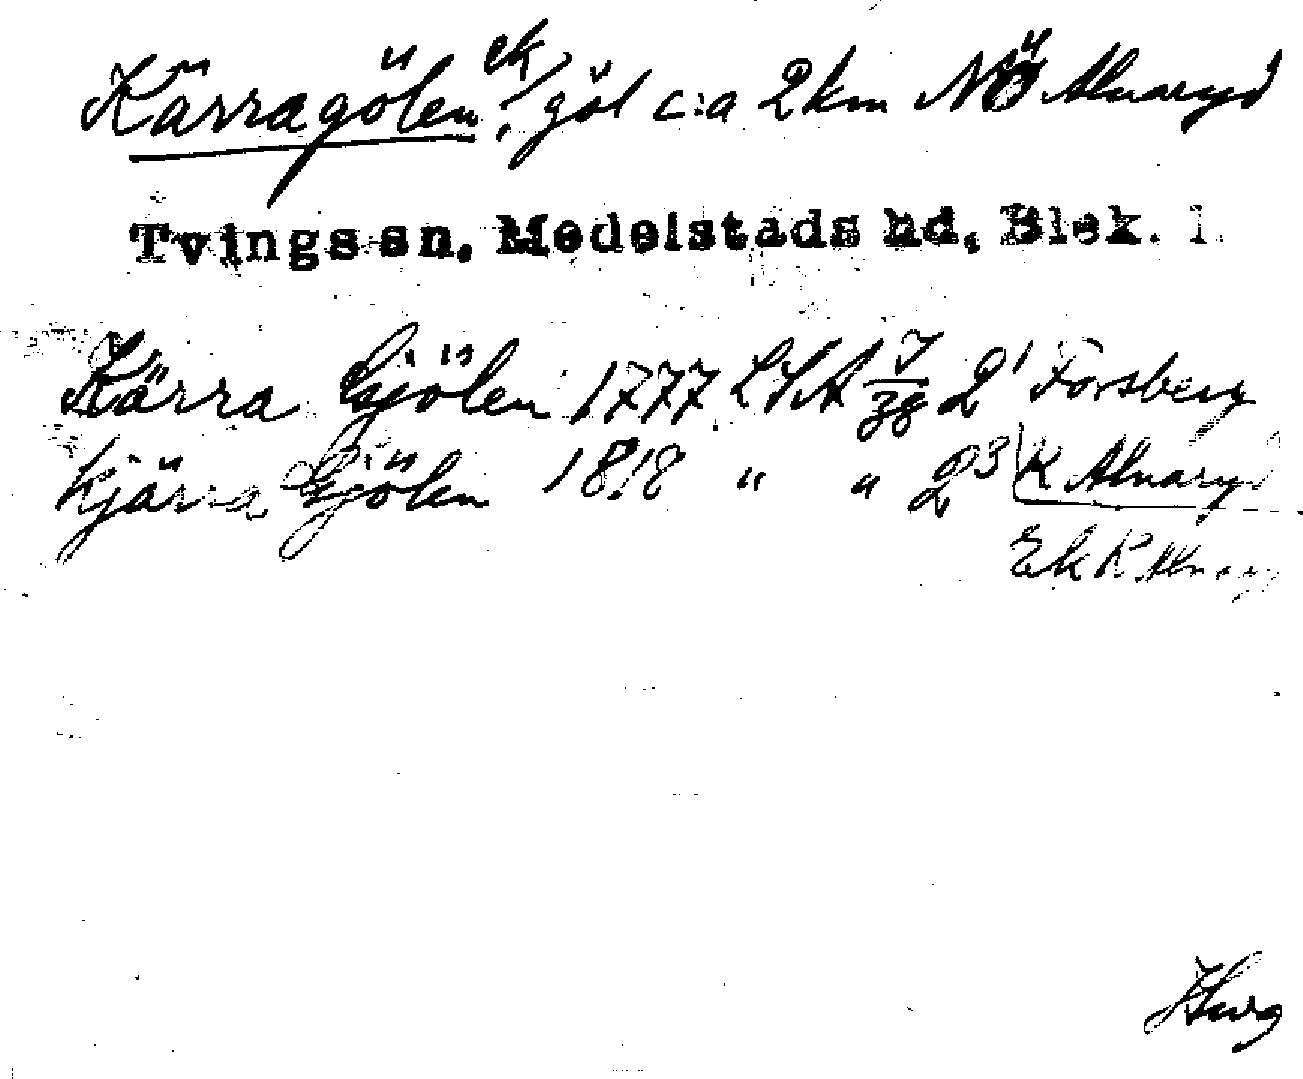 Kärragölen, ek göl c:a 2 km NÖ Alnaryd
Tvings sn, Medelstads hd, Blek. l
Kärra Gjölen 1777 LSA 7/38 2¹ Forsberg
Kjärra Gjölen 1818 " " 2³ K Alnaryd
Ek R Alnaryd